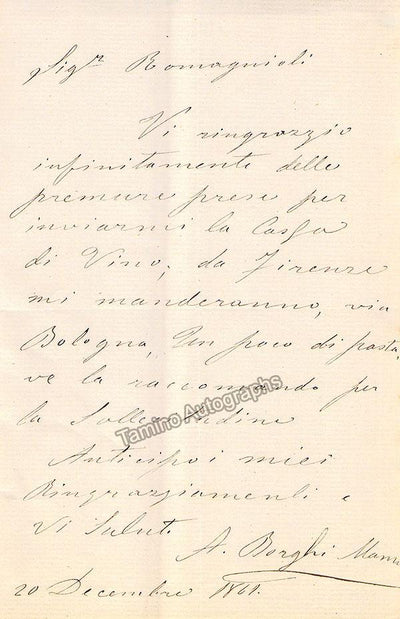 Sigr Romagnioli
Vi ringrazzio
infinitamente delle
premure prese per
inviarmi la Cassa
di Vino; da Firenze
mi manderanno, via
Bologna, Un poco di pasta,
ve la raccomando per
la Sollecitudine
Tamino Autographs
Anticipo i miei
Ringrazziamenti e
Vi Salut.
A. Borghi Mamo
20 Decembre 1861.